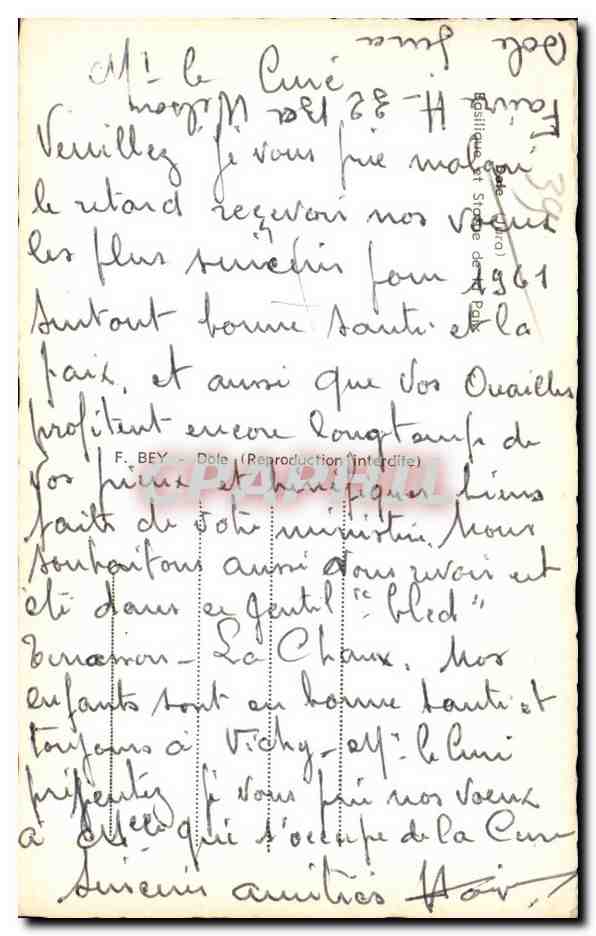 Mr le Curé
Veuillez je vous prie malgré
le retard recevoir nos voeux
les plus sincères pour 1961
surtout bonne santé et la
paix, et aussi que vos Ouailles
profitent encore longtemps de
vos pieux et bénéfiques biens
faits de votre ministère. Nous
souhaitons aussi vous revoir cet
été dans ce gentil "bled"
La Chaux. Nos
enfants sont en bonne santé et
toujours à Vichy - Mr le Curé
présentez je vous prie nos voeux
à Melle qui s'occupe de la Cure
Sincères amitiés
Dole Jura
H - 32 Bd Wilson
Basilique et Statue de la Paix
Dole (Jura)
39
F. BEY - Dole (Reproduction interdite)
CPARAMA